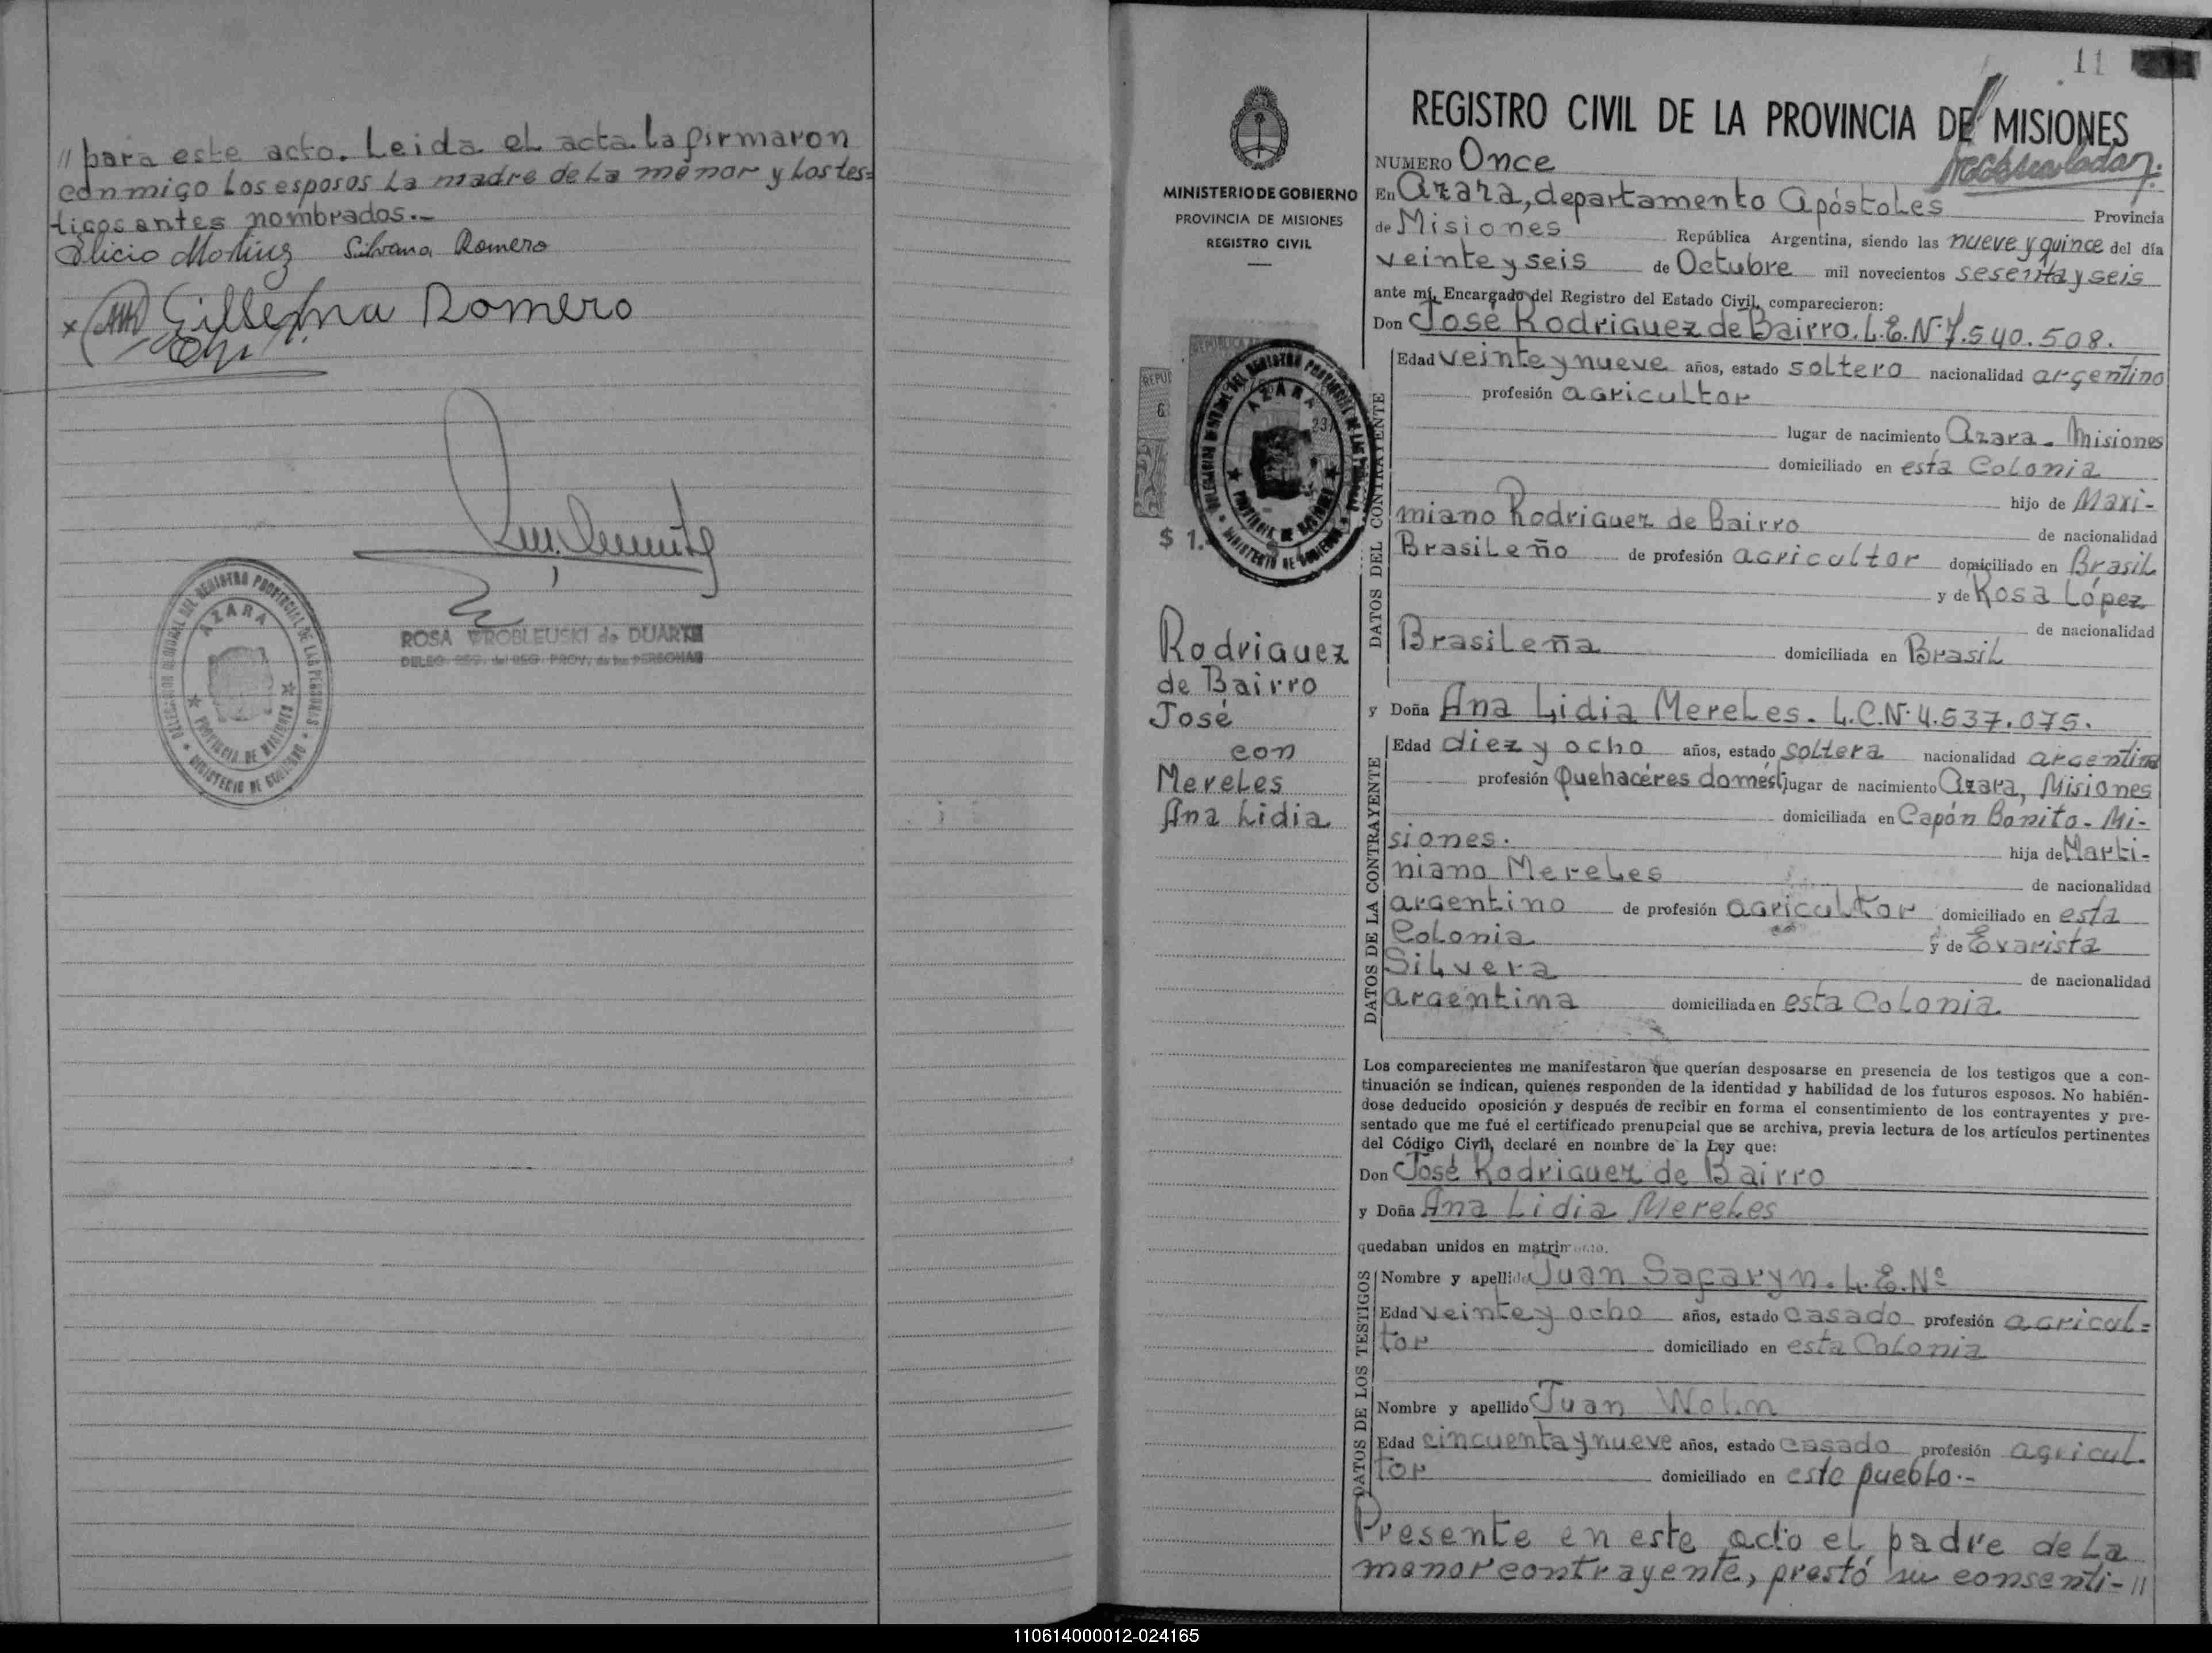 // para este acto. Leida el acta la firmaron
conmigo los esposos la madre de la menor y los tes=
tigos antes nombrados.-
Silvana Romero
Romero
ROSA WROBLEUSKI de DUARTE
DELEG. REG. del REG. PROV. de las PERSONAS
DELEGACION REGIONAL DEL REGISTRO PROVINCIAL DE LAS PERSONAS
AZARA
PROVINCIA DE MISIONES
MINISTERIO DE GOBIERNO
11
MINISTERIO DE GOBIERNO
PROVINCIA DE MISIONES
REGISTRO CIVIL
$ 1.-
Rodriguez
de Bairro
José
con
Mereles
Ana Lidia
REGISTRO CIVIL DE LA PROVINCIA DE MISIONES
NUMERO Once
En Azara, departamento Apóstoles Provincia
de Misiones República Argentina, siendo las nueve y quince del día
veinte y seis de Octubre mil novecientos sesenta y seis
ante mí, Encargado del Registro del Estado Civil, comparecieron:
Don José Rodriguez de Bairro. L.E.Nº 7.540.508.
DATOS DEL CONTRAYENTE
Edad veinte y nueve años, estado soltero nacionalidad argentino
profesión agricultor
lugar de nacimiento Azara - Misiones
domiciliado en esta Colonia
hijo de Maxi-
miano Rodriguez de Bairro
de nacionalidad
Brasileño de profesión agricultor domiciliado en Brasil
y de Rosa López
de nacionalidad
Brasileña domiciliada en Brasil
y Doña Ana Lidia Mereles. L.C.Nº 4.537.075.
DATOS DE LA CONTRAYENTE
Edad diez y ocho años, estado soltera nacionalidad argentina
profesión Quehacéres domést. lugar de nacimiento Azara, Misiones
domiciliada en Capón Bonito - Mi-
siones. hija de Marti-
niano Mereles de nacionalidad
argentino de profesión agricultor domiciliado en esta
Colonia y de Evarista
Silvera de nacionalidad
argentina domiciliada en esta Colonia
Los comparecientes me manifestaron que querían desposarse en presencia de los testigos que a con-
tinuación se indican, quienes responden de la identidad y habilidad de los futuros esposos. No habién-
dose deducido oposición y después de recibir en forma el consentimiento de los contrayentes y pre-
sentado que me fué el certificado prenupcial que se archiva, previa lectura de los artículos pertinentes
del Código Civil, declaré en nombre de la Ley que:
Don José Rodriguez de Bairro
y Doña Ana Lidia Mereles
quedaban unidos en matrimonio.
DATOS DE LOS TESTIGOS
Nombre y apellido Juan Sagaryn. L.E.Nº
Edad veinte y ocho años, estado casado profesión agricul=
tor domiciliado en esta Colonia
Nombre y apellido Juan Wolin
Edad cincuenta y nueve años, estado casado profesión agricul-
tor domiciliado en este pueblo.-
Presente en este acto el padre de la
menor contrayente, prestó su consenti-//
110614000012-024165